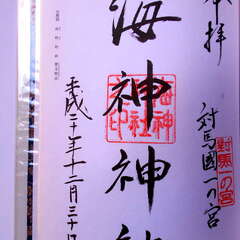 奉拝
対馬國一の宮
對馬一の宮
海神神社
海神神社之印
平成二十年十二月三十日